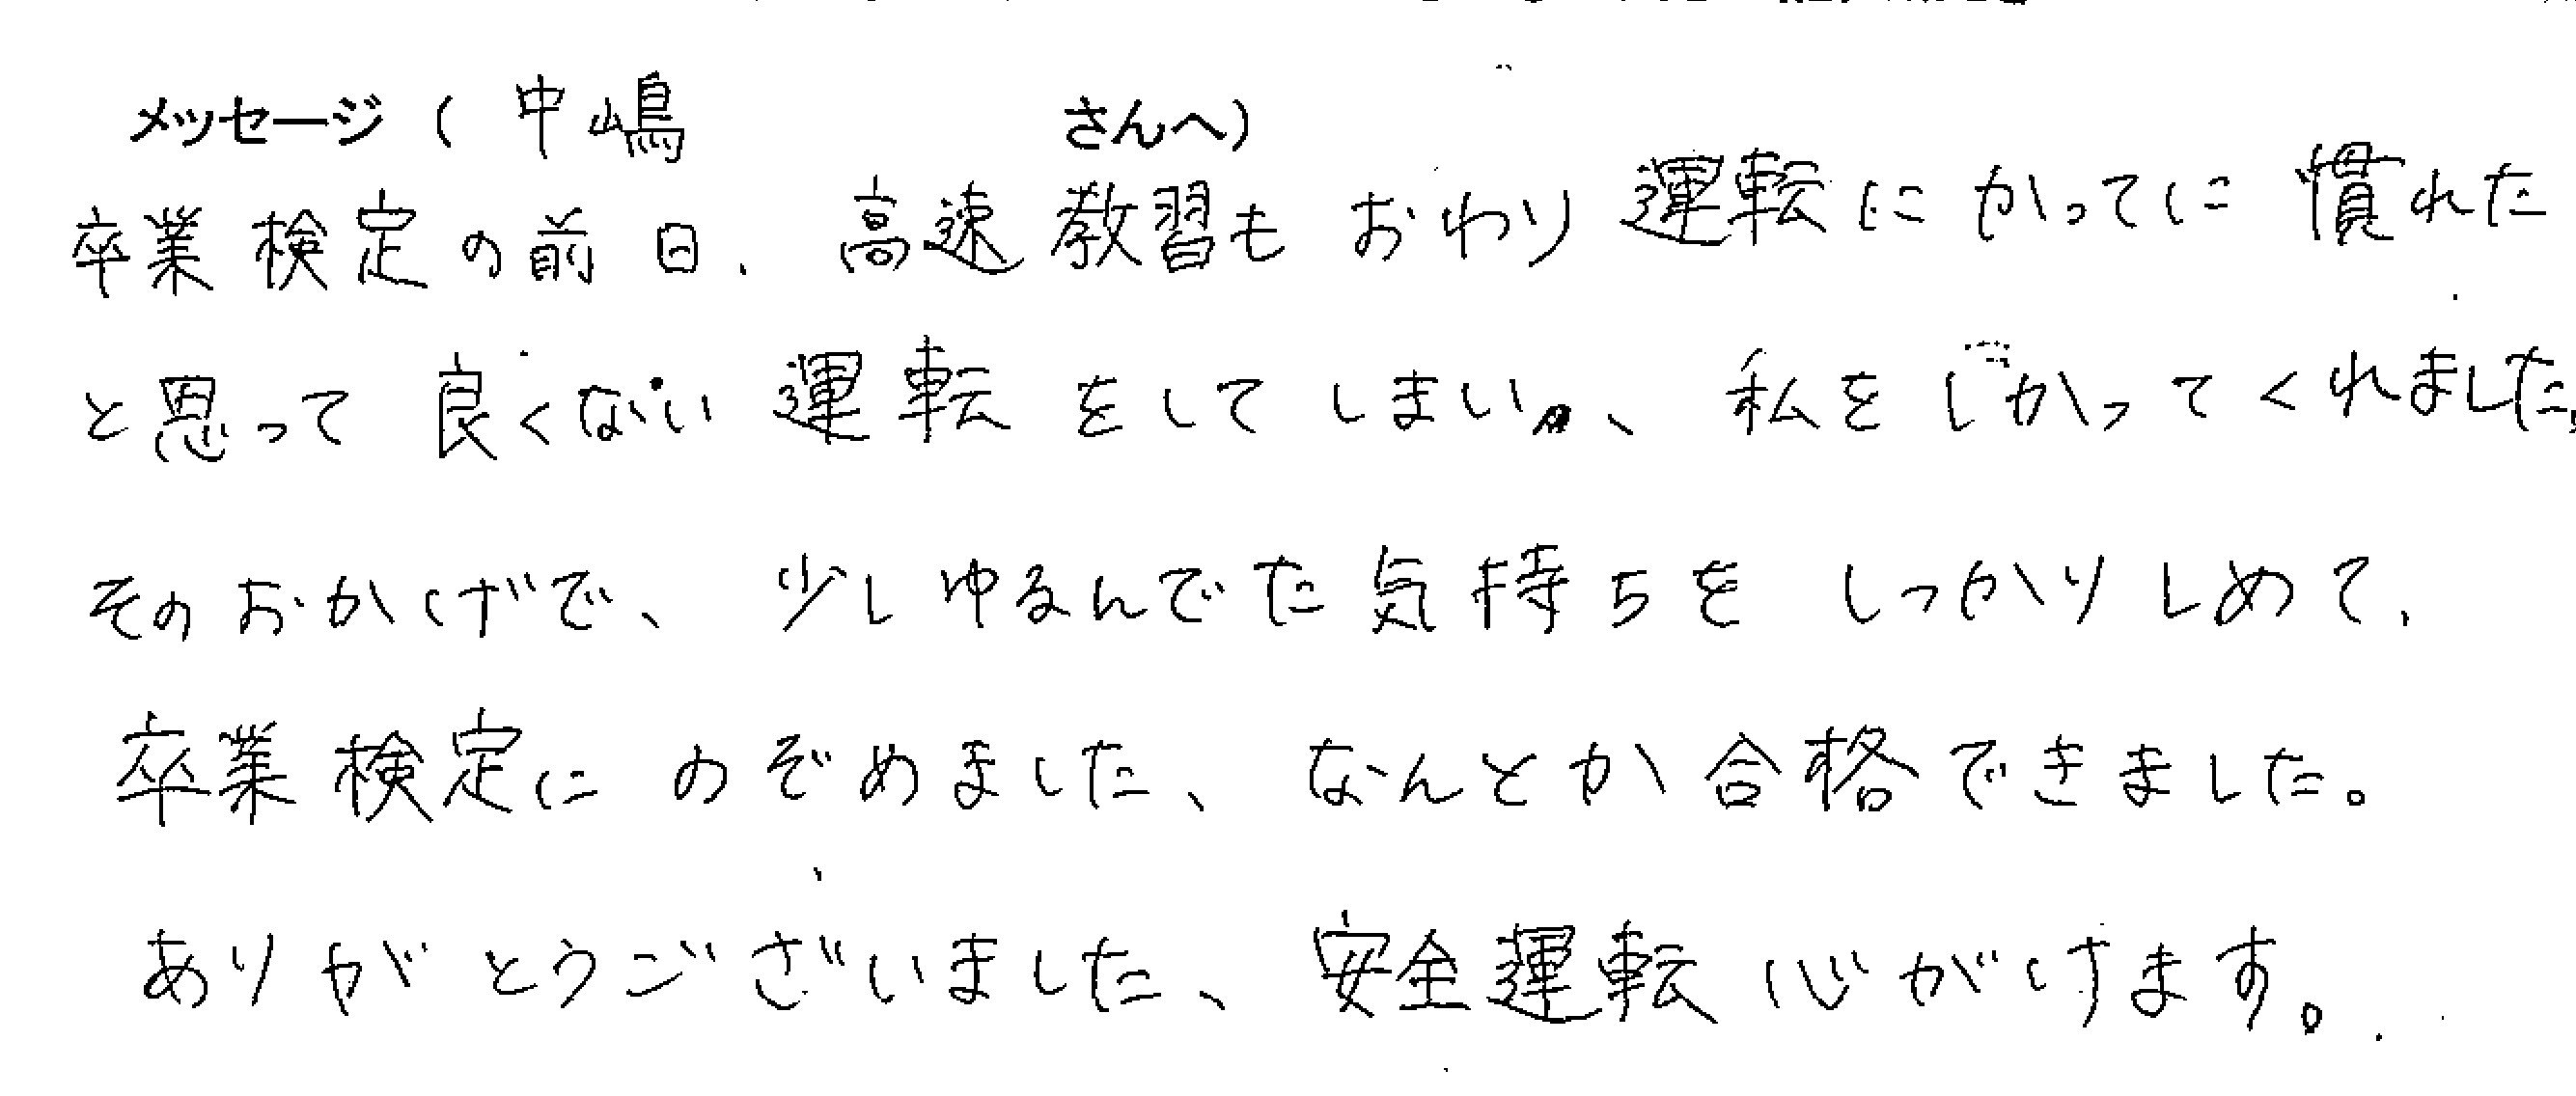 メッセージ(中嶋 さんへ)
卒業検定の前日、高速教習もおわり運転にかってに慣れた
と思って良くない運転をしてしまい、私をしかってくれました。
そのおかげで、少しゆるんでた気持ちをしっかりしめて、
卒業検定にのぞめました、なんとか合格できました。
ありがとうございました、安全運転心がけます。